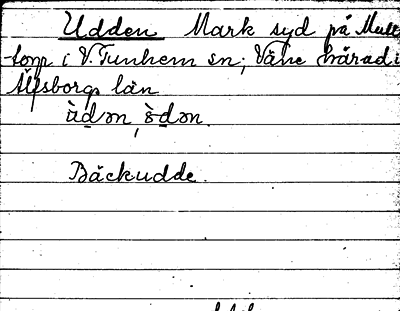 Udden Mark syd på Mull-
torp i V. Tunhem sn; Väne härad i
Älfsborgs län
ùdən, òdən.
Bäckudde.